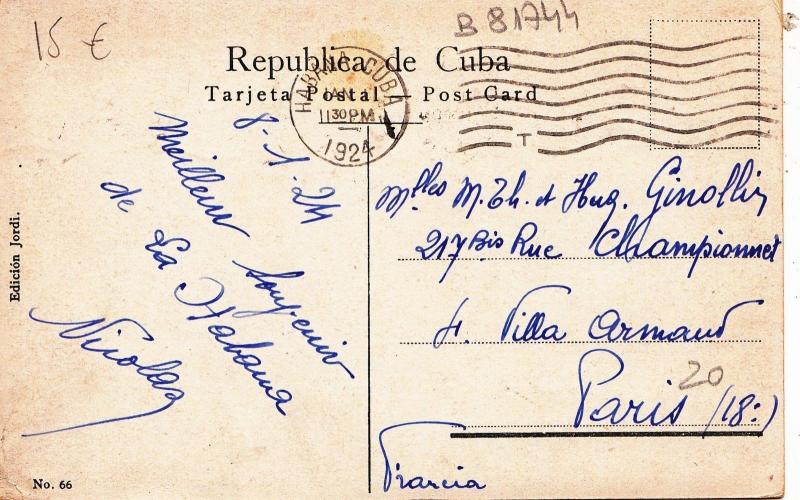 15 €
B 81744
Republica de Cuba
Tarjeta Postal — Post Card
HABANA CUBA
JAN
1130 PM
1924
T
8-1-24
Meilleur Souvenir
de La Habana
Nicolas
Mlles M. Th. et Hug. Ginollin
217 Bis Rue Championnet
4. Villa Armand
Paris (18:)
20
Francia
Edición Jordi.
No. 66